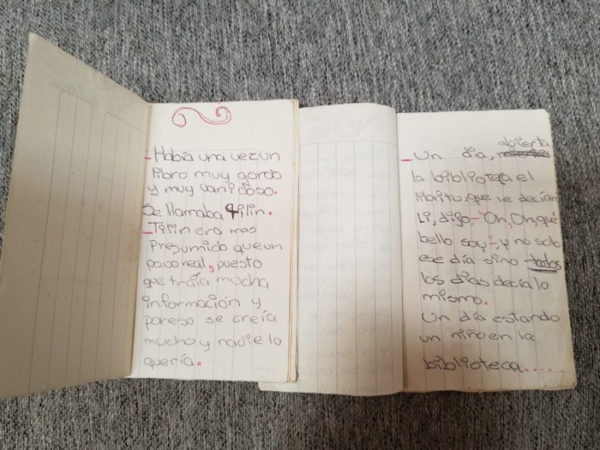 -Había una vez un
libro muy gordo
y muy vanidoso.
Se llamaba Tilin.
-Tilin era mas
Presumido que un
pavo real, puesto
que traía mucha
información y
por eso se creía
mucho y nadie lo
quería.
abierta
-Un dia,
la biblioteca el
libritu, que le decían
Li, dijo-Oh, Oh, qué
bello soy-, y no solo
ese día sino todos
los dias decía lo
mismo.
Un día estando
un niño en la
biblioteca.....